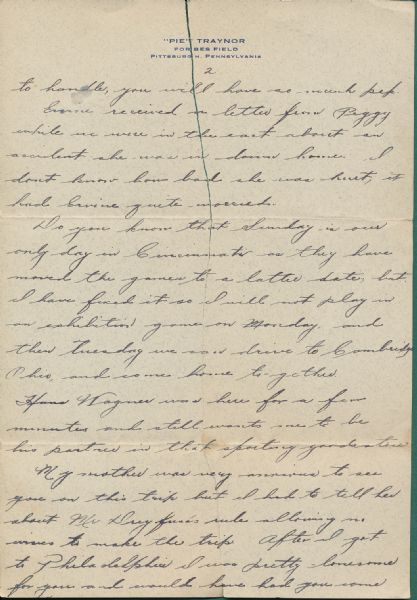 "PIE" TRAYNOR
FORBES FIELD
PITTSBURGH, PENNSYLVANIA
2
to handle, you will have so much pep
Ervine received a letter from Peggy
while we were in the east about an
accident she was in down home. I
dont know how bad she was hurt, it
had Ervine quite worried.
Do you know that Sunday is our
only day in Cincinnati as they have
moved the games to a latter date, but
I have fixed it so I will not play in
an exhibition game on Monday, and
then Tuesday we can drive to Cambridge
Ohio, and come home to-gether
Hans Wagner was here for a few
minutes and still wants me to be
his partner in that sporting goods store
My mother was very anxious to see
you on this trip but I had to tell her
about Mr Dreyfuss's rule allowing no
wives to make the trip After I got
to Philadelphia I was pretty lonesome
for you and would have had you come